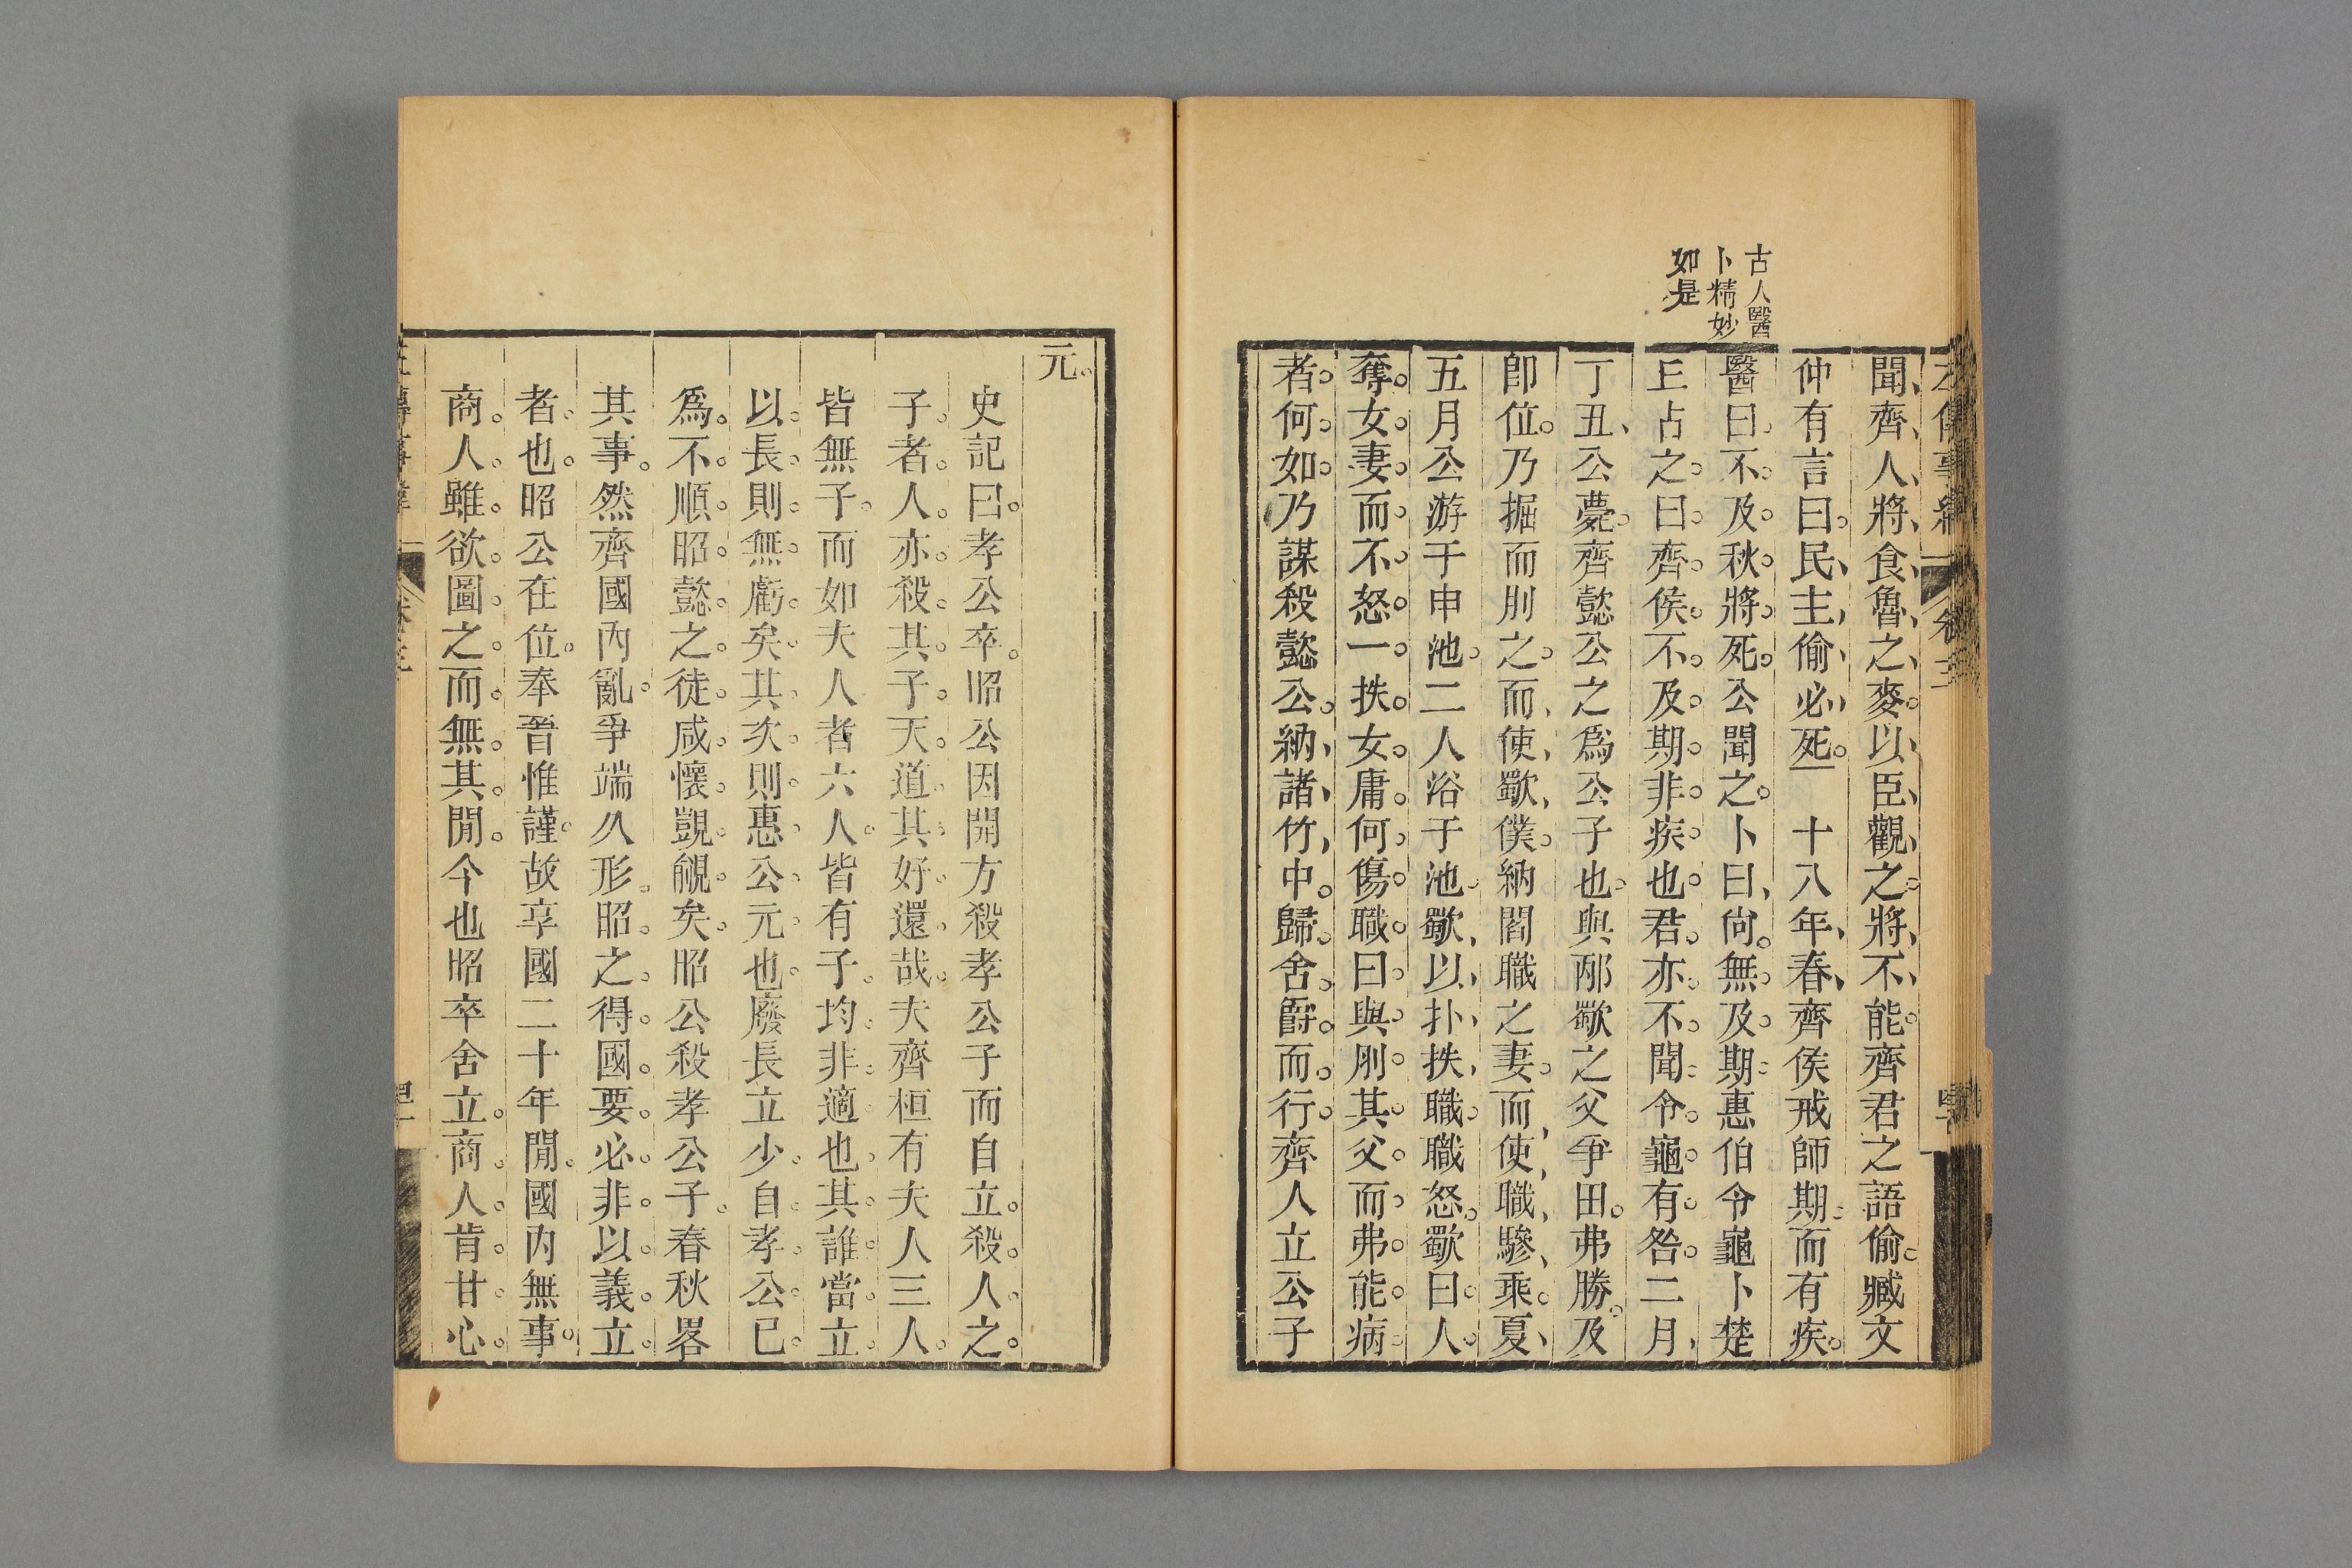 古人醫
卜精妙
如是
聞齊人將食魯之麥以臣觀之將不能齊君之語偷臧文
仲有言曰民主偷必死 十八年春齊侯戒師期而有疾
醫曰不及秋將死公聞之卜曰尚無及期惠伯令龜卜楚
丘占之曰齊侯不及期非疾也君亦不聞令龜有咎二月
丁丑公薨齊懿公之爲公子也與邴歜之父爭田弗勝及
卽位乃掘而刖之而使歜僕納閻職之妻而使職驂乘夏
五月公游于申池二人浴于池歜以扑抶職職怒歜曰人
奪女妻而不怒一抶女庸何傷職曰與刖其父而弗能病
者何如乃謀殺懿公納諸竹中歸舍爵而行齊人立公子
元
史記曰孝公卒昭公因開方殺孝公子而自立殺人之
子者人亦殺其子天道其好還哉夫齊桓有夫人三人
皆無子而如夫人者六人皆有子均非適也其誰當立
以長則無虧矣其次則惠公元也廢長立少自孝公已
爲不順昭懿之徒咸懷覬覦矣昭公殺孝公子春秋畧
其事然齊國內亂爭端久形昭之得國要必非以義立
者也昭公在位奉晉惟謹故享國二十年閒國內無事
商人雖欲圖之而無其閒今也昭卒舍立商人肯甘心